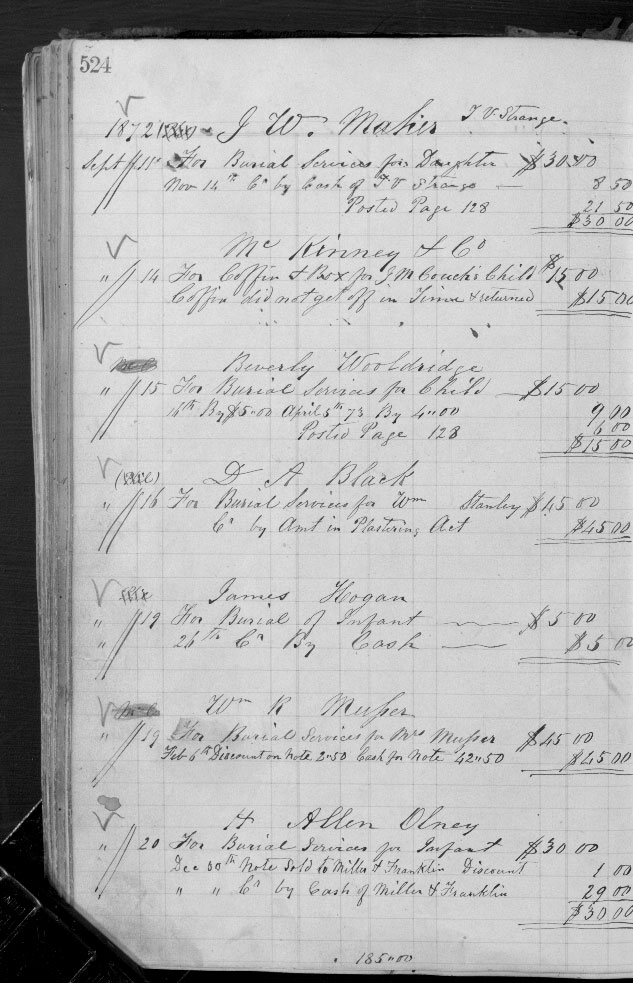 524
1872 J W. Maher T V Strange.
Sept 11" For Burial Services for Daughter $30.00
Nov 14th Cr by Cash of T V Strange — 8 50
Posted Page 128 21 50
$30 00
Mc Kinney & Co
" 14 For Coffin & Box for J M Couch's Child $15 00
Coffin did not get off in Time & returned $15 00
Beverly Wooldridge
" 15 For Burial Services for Child — $15 00
16th By $5"00 April 5th 73 By 4"00 9 00
Posted Page 128 6 00
$15 00
D A Black
" 16 For Burial Services for Wm Stanley $45 00
Cr by Amt in Plastering Act $45 00
James Hogan
" 19 For Burial of Infant — $5 00
" 26th Cr By Cash — $5 00
Wm R Musser
" 19 For Burial Services for Mrs Musser $45 00
Feb 6th Discount on Note 2"50 Cash for Note 42"50 $45 00
H Allen Olney
" 20 For Burial Services for Infant $30 00
Dec 30th Note Sold to Miller & Franklin Discount 1 00
" " Cr by Cash of Miller & Franklin 29 00
$30 00
185"00